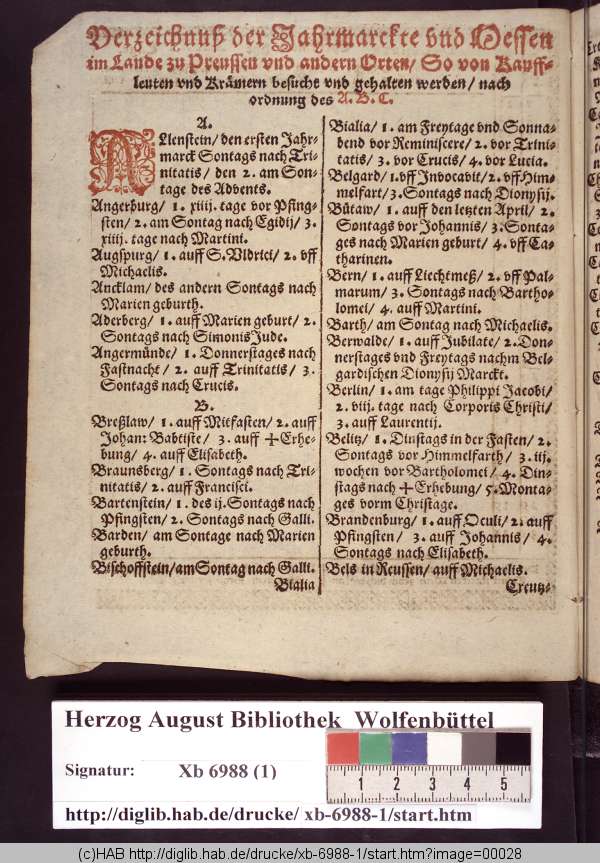 Verzeichnuß der Jahrmarckte vnd Messen
im Lande zu Preussen vnd andern Orten/ So von Kauff-
leuten vnd Krämern besucht vnd gehalten werden/ nach
ordnung des A. B. C.
A.
ALlenstein/ den ersten Jahr-
marck Sontags nach Tri-
nitatis/ den 2. am Son-
tage des Advents.
Angerburg/ 1. xiiij. tage vor Pfing-
sten/ 2. am Sontag nach Egidij/ 3.
xiiij. tage nach Martini.
Augspurg/ 1. auff S. Vldrici/ 2. vff
Michaelis.
Ancklam/ des andern Sontags nach
Marien geburth.
Aderberg/ 1. auff Marien geburt/ 2.
Sontags nach Simonis Jude.
Angermünde/ 1. Donnerstages nach
Fastnacht/ 2. auff Trinitatis/ 3.
Sontags nach Crucis.
B.
Breßlaw/ 1. auff Mitfasten/ 2. auff
Johan: Babtiste/ 3. auff ☩Erhe-
bung/ 4. auff Elisabeth.
Braunsberg/ 1. Sontags nach Tri-
nitatis/ 2. auff Francisci.
Bartenstein/ 1. des ij. Sontags nach
Pfingsten/ 2. Sontags nach Galli.
Barden/ am Sontage nach Marien
geburth.
Bischoffstein/ am Sontag nach Galli.
Bialia
Bialia/ 1. am Freytage vnd Sonna-
bend vor Reminiscere/ 2. vor Trini-
tatis/ 3. vor Crucis/ 4. vor Lucia.
Belgard/ 1. vff Invocavit/ 2. vff Him-
melfart/ 3. Sontags nach Dionysij.
Bütaw/ 1. auff den letzten April/ 2.
Sontags vor Johannis/ 3. Sonta-
ges nach Marien geburt/ 4. vff Ca-
tharinen.
Bern/ 1. auff Liechtmeß/ 2. vff Pal-
marum/ 3. Sontags nach Bartho-
lomei/ 4. auff Martini.
Barth/ am Sontag nach Michaelis.
Berwalde/ 1. auff Jubilate/ 2. Don-
nerstages vnd Freytags nachm Bel-
gardischen Dionysij Marckt.
Berlin/ 1. am tage Philippi Jacobi/
2. viij. tage nach Corporis Christi/
3. auff Laurentij.
Belitz/ 1. Dinstags in der Fasten/ 2.
Sontags vor Himmelfarth/ 3. iij.
wochen vor Bartholomei/ 4. Din-
stags nach ☩Erhebung/ 5. Monta-
ges vorm Christage.
Brandenburg/ 1. auff Oculi/ 2. auff
Pfingsten/ 3. auff Johannis/ 4.
Sontags nach Elisabeth.
Bels in Reussen/ auff Michaelis.
Creutz-
Herzog August Bibliothek Wolfenbüttel
Signatur: Xb 6988 (1)
1 2 3 4 5
http://diglib.hab.de/drucke/ xb-6988-1/start.htm
(c)HAB http://diglib.hab.de/drucke/xb-6988-1/start.htm?image=00028